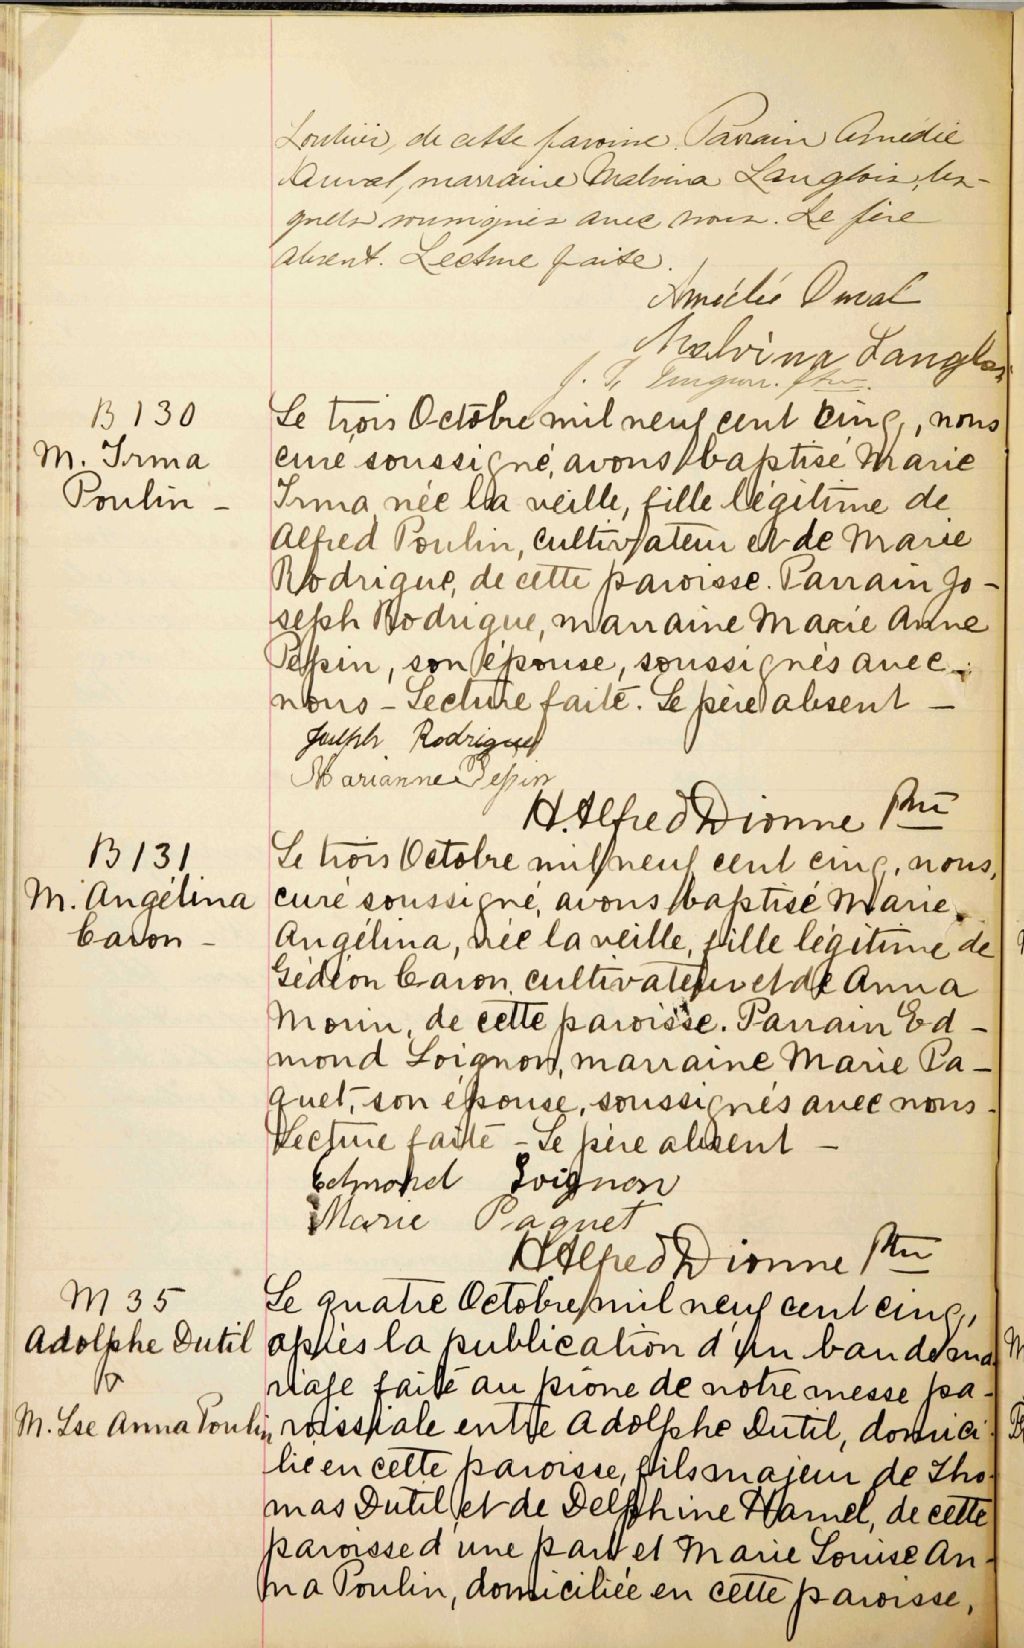 Loubier, de cette paroisse. Parrain Amédée
Duval, marraine Malvina Langlois, les-
quels soussignés avec nous. Le père
absent. Lecture faite.
Amédée Duval
Malvina Langlois
J. T. ptre.
B 130
M. Irma
Poulin -
Le trois Octobre mil neuf cent cinq, nous
curé soussigné, avons baptisé Marie
Irma, née la veille, fille légitime de
Alfred Poulin, cultivateur et de Marie
Rodrigue, de cette paroisse. Parrain Jo-
seph Rodrigue, marraine Marie Anne
Pepin, son épouse, soussignés avec
nous - Lecture faite. Le père absent -
Joseph Rodrigue
Marianne Pepin
H. Alfred Dionne Ptre
B 131
M. Angélina
Caron -
Le trois Octobre mil neuf cent cinq, nous,
curé soussigné, avons baptisé Marie
Angélina, née la veille, fille légitime de
Gédéon Caron, cultivateur et de Anna
Morin, de cette paroisse. Parrain Ed-
mond Loignon, marraine Marie Pa-
quet, son épouse, soussignés avec nous.
Lecture faite - Le père absent -
Edmond Loignon
Marie Paquet
H Alfred Dionne Ptre
M 35
Adolphe Dutil
&
M. Lse Anna Poulin
Le quatre Octobre mil neuf cent cinq,
après la publication d'un ban de ma-
riage faite au prône de notre messe pa-
roissiale entre Adolphe Dutil, domici-
lié en cette paroisse, fils majeur de Tho-
mas Dutil et de Delphine Hamel, de cette
paroisse d'une part et Marie Louise An-
na Poulin, domiciliée en cette paroisse,